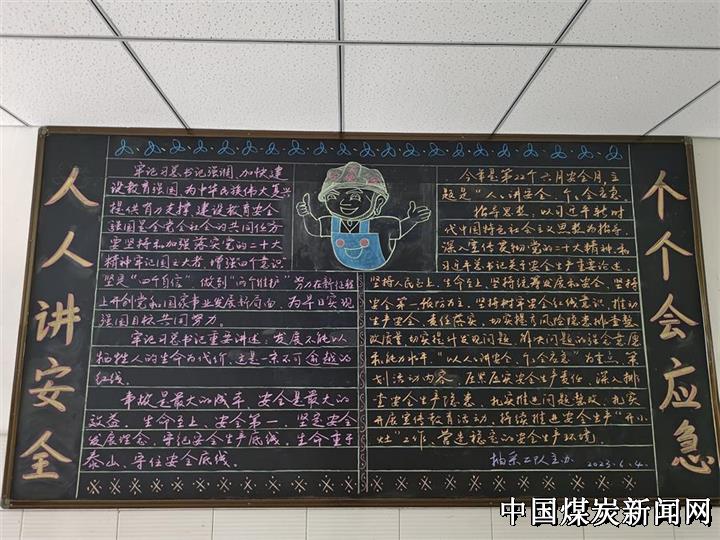 人人讲安全
牢记习总书记强调,加快建
设教育强国为中华民族伟大复兴
提供有力支撑,建设教育安全
强国是全党全社会的共同任务
要坚持和加强落实党的二十大
精神牢记国之大者,增强四个意识
坚定"四个自信"做到"两个维护"努力在新征程
上开创党和国家事业发展新局面,为早日实现
强国目标共同努力。
牢记习总书记重要讲述,发展不能以
牺牲人的生命为代价,这是一条不可逾越的
红线。
事故是最大的成本,安全是最大的
效益,生命至上、安全第一,坚定安全
发展理念,牢记安全生产底线,生命重于
泰山、守住安全底线。
今年是第22个六月安全月,主
题是"人人讲安全、个个会应急"
指导思想,以习近平新时
代中国特色社会主义思想为指导,
深入宣传贯彻党的二十大精神和
习近平总书记关于安全生产重要论述,
坚持人民至上,生命至上,坚持统筹发展和安全,坚持
安全第一预防为主,坚持树牢安全红线意识,推动
生产安全,责任落实,切实提高风险隐患排查整
改质量切实提升发现问题,解决问题的
能力水平,"以人人讲安全,个个会应急"为主题,策
划活动内容,压紧压实安全生产责任,深入排
查安全生产隐患,扎实推进问题整改,扎实
开展宣传教育活动,持续推进安全生产"开小
灶"工作,营造稳定的安全生产环境。
抽采工队主办 2023.6.4.
个个会应急
中国煤炭新闻网